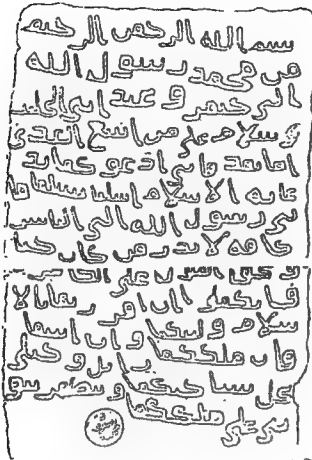 بسم الله الرحمن الرحيم
من محمد رسول الله
الى جيفر و عبد ابني الجلند
ى سلام على من اتبع الهدى
اما بعد فاني ادعوكما بد
عاية الاسلام اسلما تسلما فا
ني رسول الله الى الناس
كافة لانذر من كان حيا
ويحق القول على الكافرين
فانكما ان اقررتما بالا
سلام وليتكما وان ابيتما
فان ملككما زايل وخيلي
تحل بساحتكما وتظهر نبو
تي على ملككما